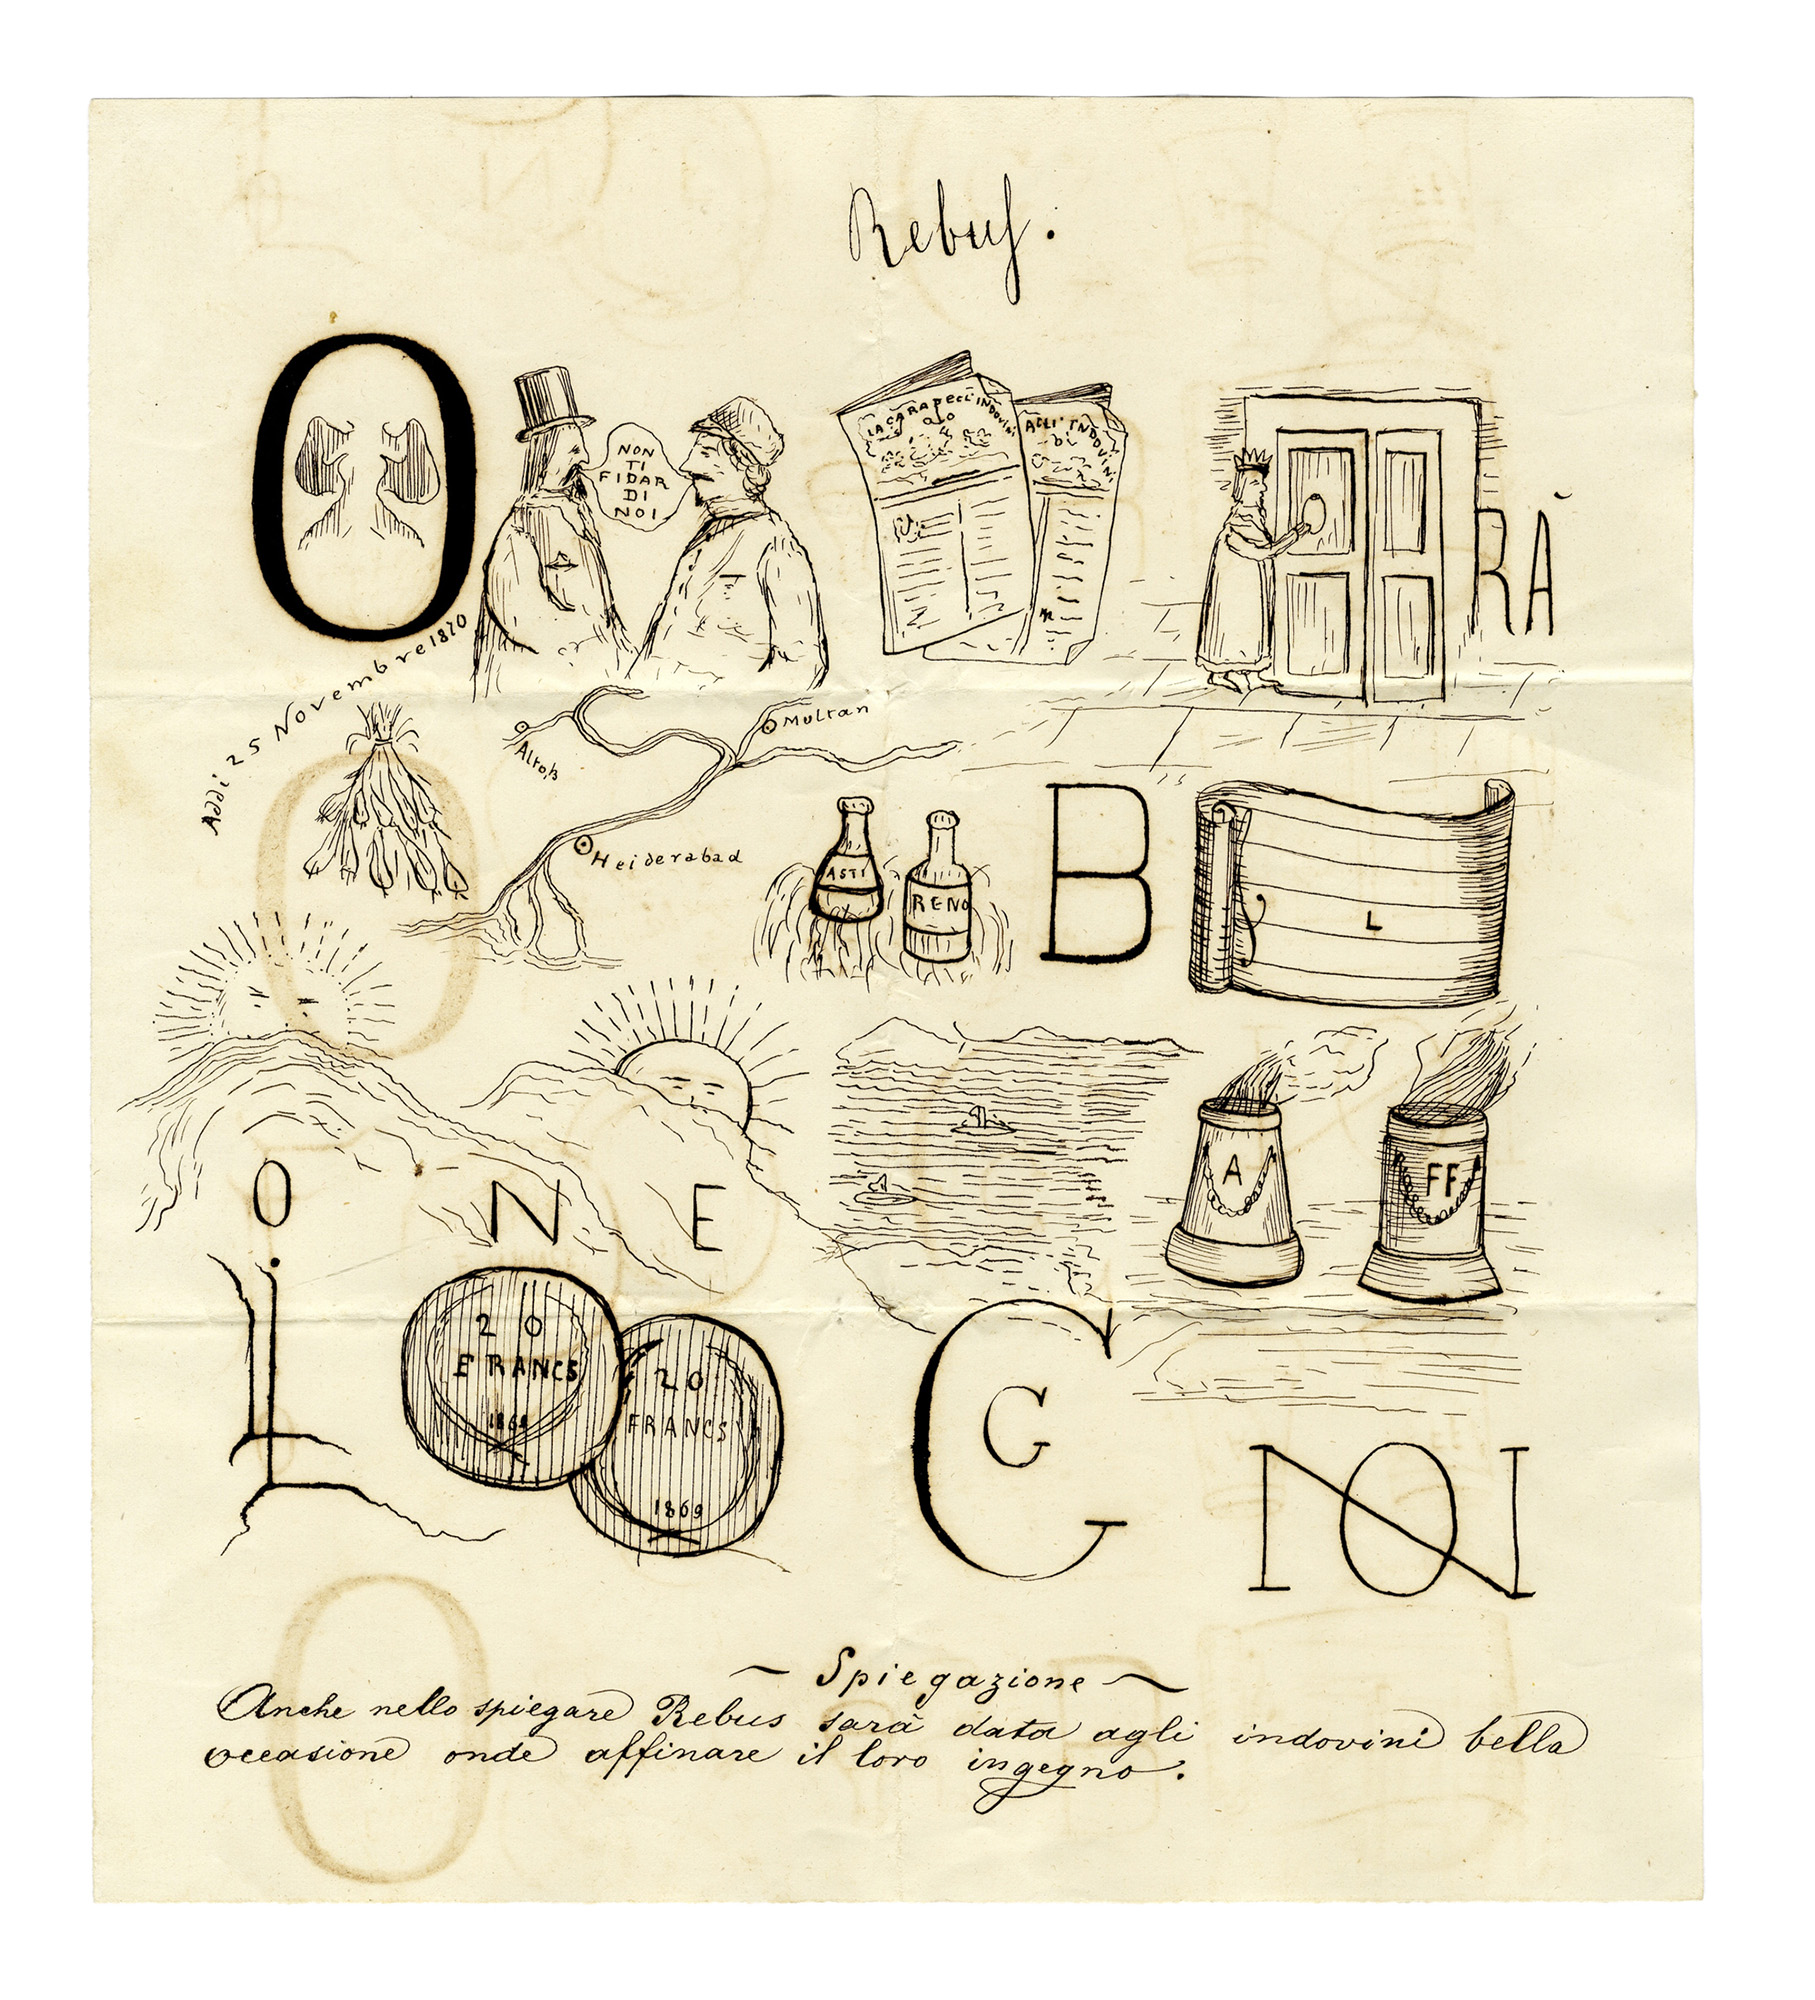 Rebus.
O
NON
TI
FIDAR
DI
NOI
AGLI' INDOVINI
DI
RÀ
Addi 25 Novembre 1870
Multan
Heiderabad
ASTI
RENO
B
L
A
FF
O
N
E
20
FRANCS
1869
20
FRANCS
1869
G
G
NO
~ Spiegazione ~
Anche nello spiegare Rebus sarà data agli indovini bella
occasione onde affinare il loro ingegno.